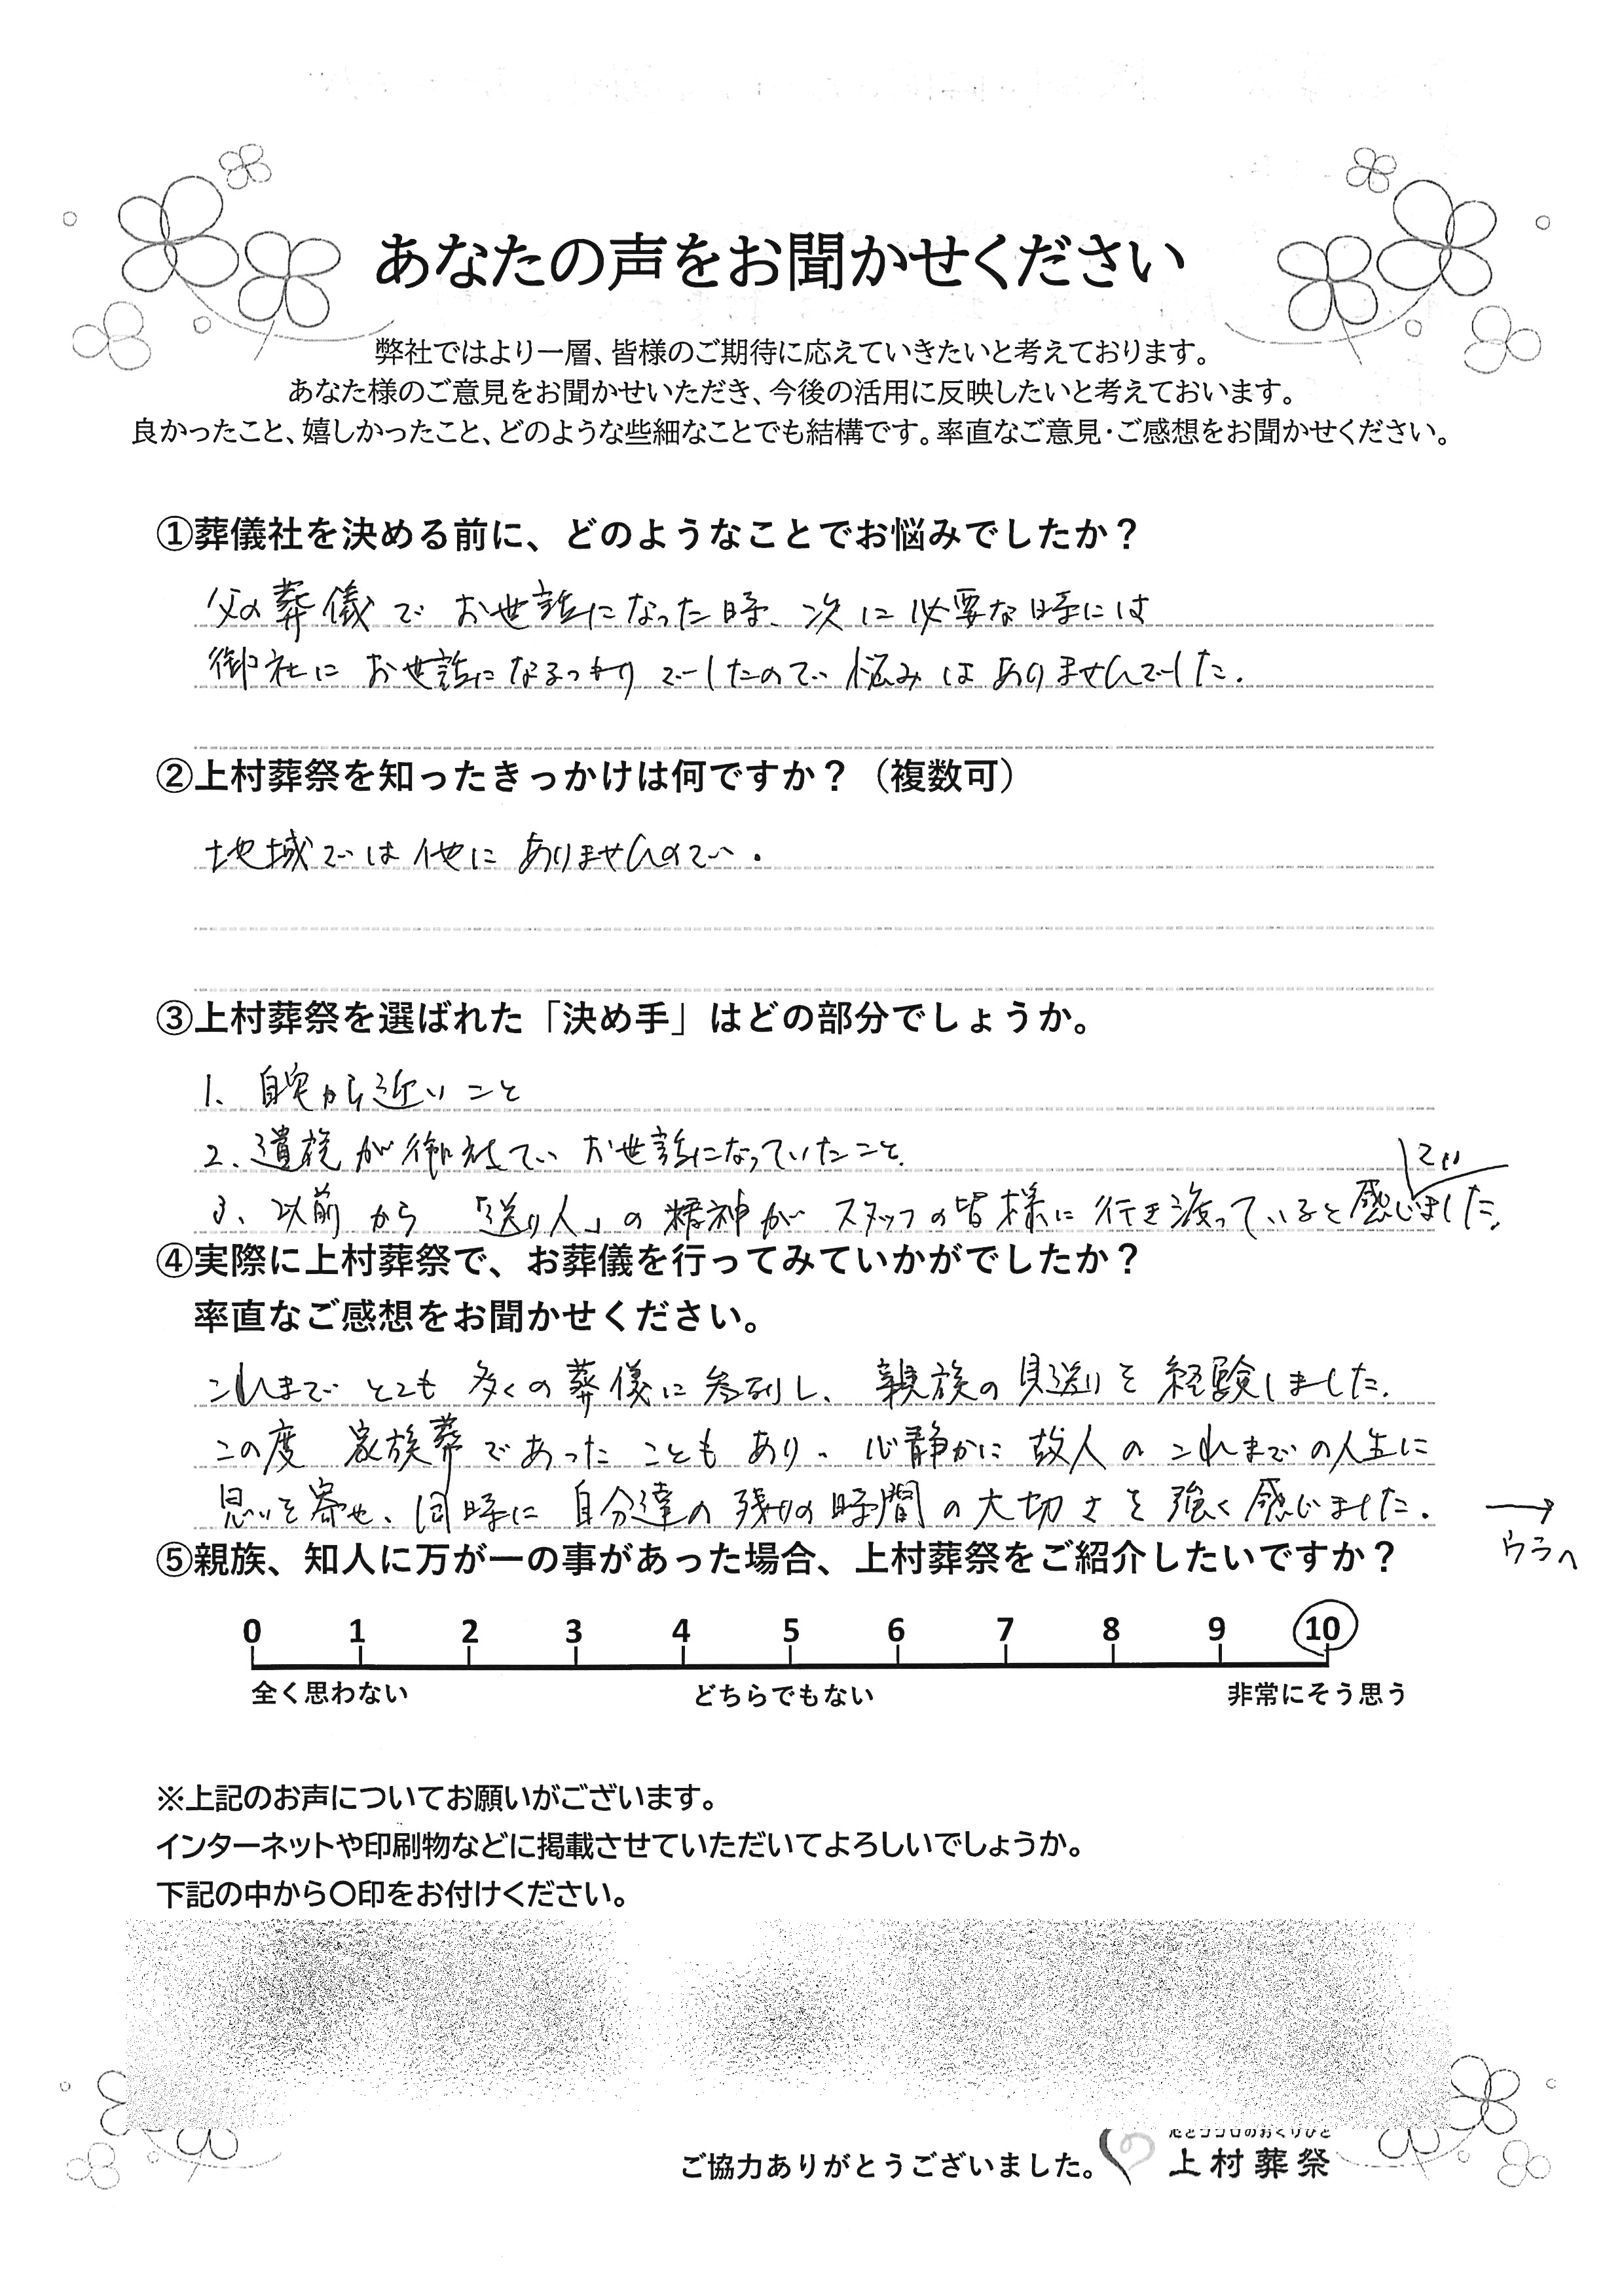 あなたの声をお聞かせください
弊社ではより一層、皆様のご期待に応えていきたいと考えております。
あなた様のご意見をお聞かせいただき、今後の活用に反映したいと考えておいます。
良かったこと、嬉しかったこと、どのような些細なことでも結構です。率直なご意見・ご感想をお聞かせください。
①葬儀社を決める前に、どのようなことでお悩みでしたか？
父の葬儀でお世話になった時、次に必要な時には
御社にお世話になるつもりでしたので悩みはありませんでした.
②上村葬祭を知ったきっかけは何ですか？（複数可）
地域では他にありませんので.
③上村葬祭を選ばれた「決め手」はどの部分でしょうか。
1、自宅から近いこと
2、遺族が御社でお世話になっていたこと.
てい
3、以前から「送り人」の精神がスタッフの皆様に行き渡っていると感じました.
④実際に上村葬祭で、お葬儀を行ってみていかがでしたか？
率直なご感想をお聞かせください。
これまでとても多くの葬儀に参列し、親族の見送りを経験しました.
この度家族葬であったこともあり、心静かに故人のこれまでの人生に
思いを寄せ、同時に自分達の残りの時間の大切さを強く感じました.
→
ウラへ
⑤親族、知人に万が一の事があった場合、上村葬祭をご紹介したいですか？
0 1 2 3 4 5 6 7 8 9 10
全く思わない どちらでもない 非常にそう思う
※上記のお声についてお願いがございます。
インターネットや印刷物などに掲載させていただいてよろしいでしょうか。
下記の中から〇印をお付けください。
ご協力ありがとうございました。 上村葬祭